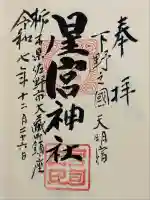 奉拝
下野之國天明宿
星宮神社
栃木県佐野市大蔵町鎮座
令和七年十二月二十六日